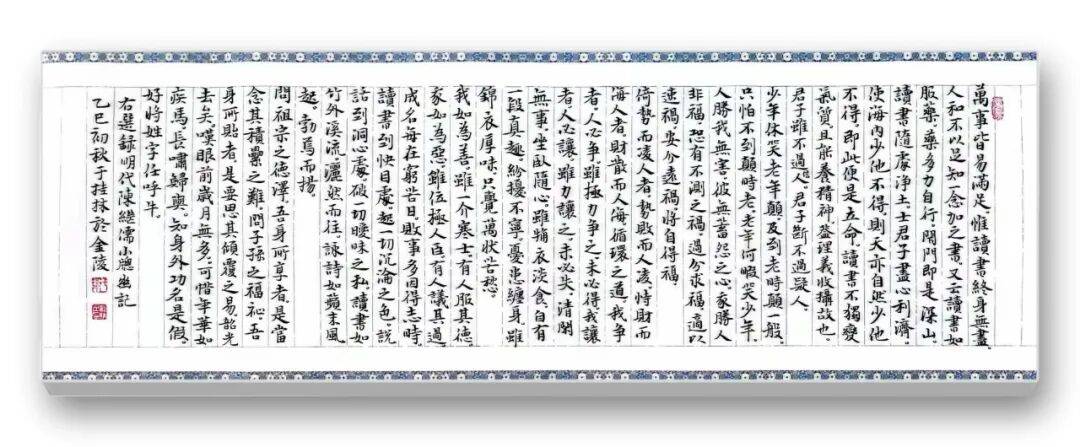 萬事皆易滿足惟讀書終身無盡
人和不以足知一念加之書又云讀書如
服藥藥多力自行閉門即是深山
讀書隨處淨土士君子盡心利濟
使海內少他不得則天亦自然少他
不得即此便是立命讀書不獨變
氣質且能養精神蓋理義收攝故也
君子雖不過人君子斷不過疑人
少年休笑老年顛及到老時顛一般
只怕不到顛時老老年何暇笑少年
人勝我無害彼無蓄怨之心我勝人
非福恐有不測之禍過分求福適以
速禍安分遠禍將自得福
倚勢而凌人者勢敗而人凌恃財而
侮人者財散而人侮循環之道我爭
者人必爭雖極力爭之未必得我讓
者人必讓雖力讓之未必失清閑
無事坐臥隨心雖粗衣淡食自有
一段真趣紛擾不寧憂患纏身雖
錦衣厚味只覺萬狀苦愁
我如為善雖一介寒士有人服其德
我如為惡雖位極人臣有人議其過
成名每在窮苦日敗事多因得志時
讀書到快目處起一切沉淪之色說
話到洞心處破一切曖昧之私讀書如
竹外溪流灑然而往詠詩如蘋末風
起勃焉而揚
問祖宗之德澤吾身所享者是當
念其積累之難問子孫之福祉吾
身所貽者是要思其傾覆之易韶光
去矣嘆眼前歲月無多可惜年華如
疾馬長嘯歸與知身外功名是假
好將姓字任呼牛
右選錄明代陳繼儒小窗幽記
乙巳初秋于挂林於金陵